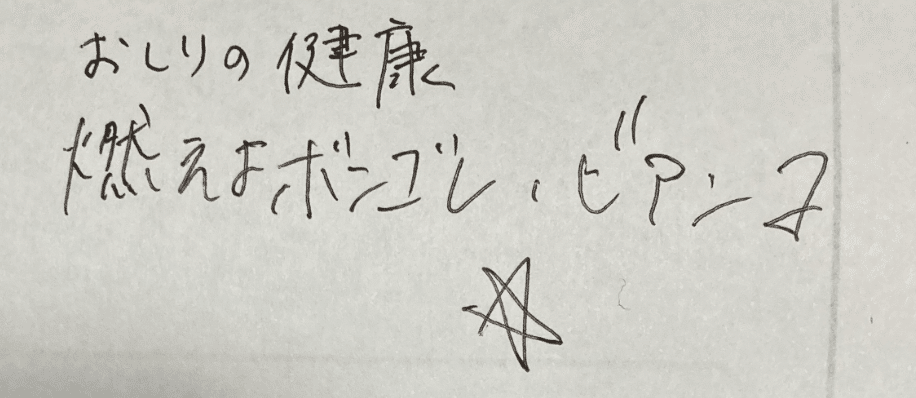 おしりの健康
燃えよボンゴレ・ビアンコ
☆